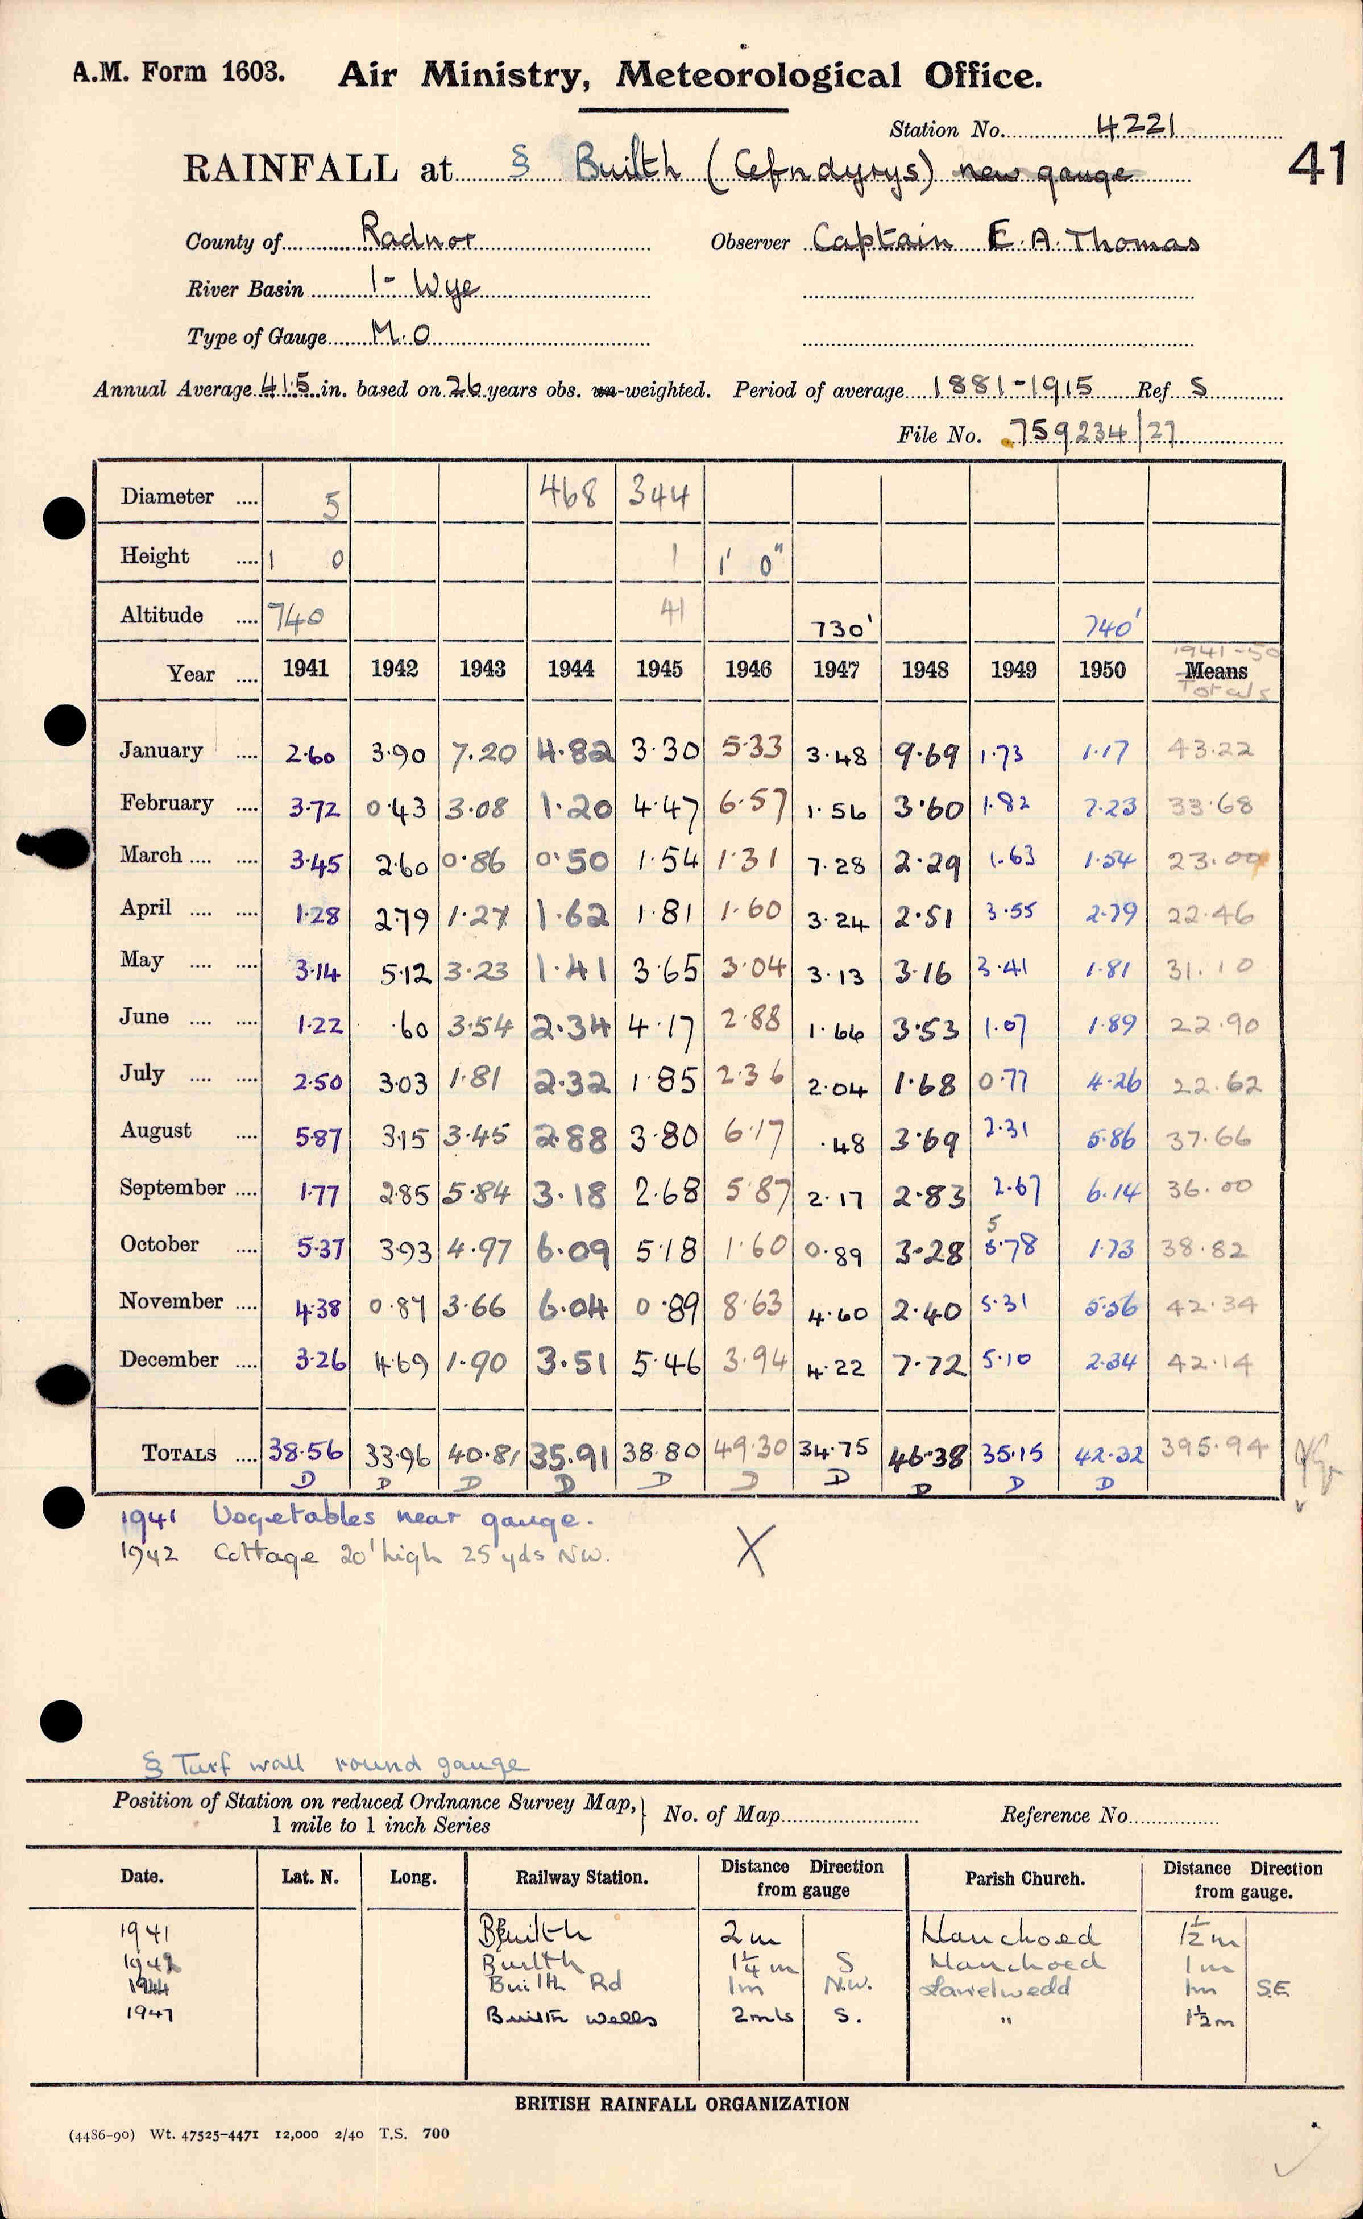 A.M. Form 1603. Air Ministry, Meteorological Office.
Station No. 4221
41
RAINFALL at § Builth (Cefndyrys) new gauge
County of Radnor Observer Captain E. A. Thomas
River Basin 1- Wye
Type of Gauge M.O
Annual Average 41.5 in. based on 26 years obs. un-weighted. Period of average 1881-1915 Ref S
File No. 759234/27
Diameter .... 5 468 344
Height .... 1 0 1 1' 0"
Altitude .... 740 41 730' 740'
1941-50
Year .... 1941 1942 1943 1944 1945 1946 1947 1948 1949 1950 Means
Totals
January .... 2.60 3.90 7.20 4.82 3.30 5.33 3.48 9.69 1.73 1.17 43.22
February .... 3.72 0.43 3.08 1.20 4.47 6.57 1.56 3.60 1.82 7.23 33.68
March .... .... 3.45 2.60 0.86 0.50 1.54 1.31 7.28 2.29 1.63 1.54 23.00
April .... .... 1.28 2.79 1.27 1.62 1.81 1.60 3.24 2.51 3.55 2.79 22.46
May .... .... 3.14 5.12 3.23 1.41 3.65 3.04 3.13 3.16 3.41 1.81 31.10
June .... .... 1.22 .60 3.54 2.34 4.17 2.88 1.66 3.53 1.07 1.89 22.90
July .... .... 2.50 3.03 1.81 2.32 1.85 2.36 2.04 1.68 0.77 4.26 22.62
August .... 5.87 3.15 3.45 2.88 3.80 6.17 .48 3.69 2.31 5.86 37.66
September .... 1.77 2.85 5.84 3.18 2.68 5.87 2.17 2.83 2.67 6.14 36.00
October .... 5.37 3.93 4.97 6.09 5.18 1.60 0.89 3.28 5.78 1.73 38.82
November .... 4.38 0.87 3.66 6.04 0.89 8.63 4.60 2.40 5.31 5.56 42.34
December .... 3.26 4.69 1.90 3.51 5.46 3.94 4.22 7.72 5.10 2.34 42.14
TOTALS .... 38.56 33.96 40.81 35.91 38.80 49.30 34.75 46.38 35.15 42.32 395.94
D D D D D D D D D D
1941 Vegetables near gauge.
1942 Cottage 20' high 25 yds NW. X
§ Turf wall round gauge
Position of Station on reduced Ordnance Survey Map, 1 mile to 1 inch Series } No. of Map Reference No.
Date. Lat. N. Long. Railway Station. Distance Direction from gauge Parish Church. Distance Direction from gauge.
1941 Builth 2m Llanchoed 1½m
1942 Builth 1¼m S Llanchoed 1m
1944 Builth Rd 1m N.W. Llanelwedd 1m S.E
1947 Builth Wells 2mls S. " 1½m
BRITISH RAINFALL ORGANIZATION
(4486-90) Wt. 47525-4471 12,000 2/40 T.S. 700